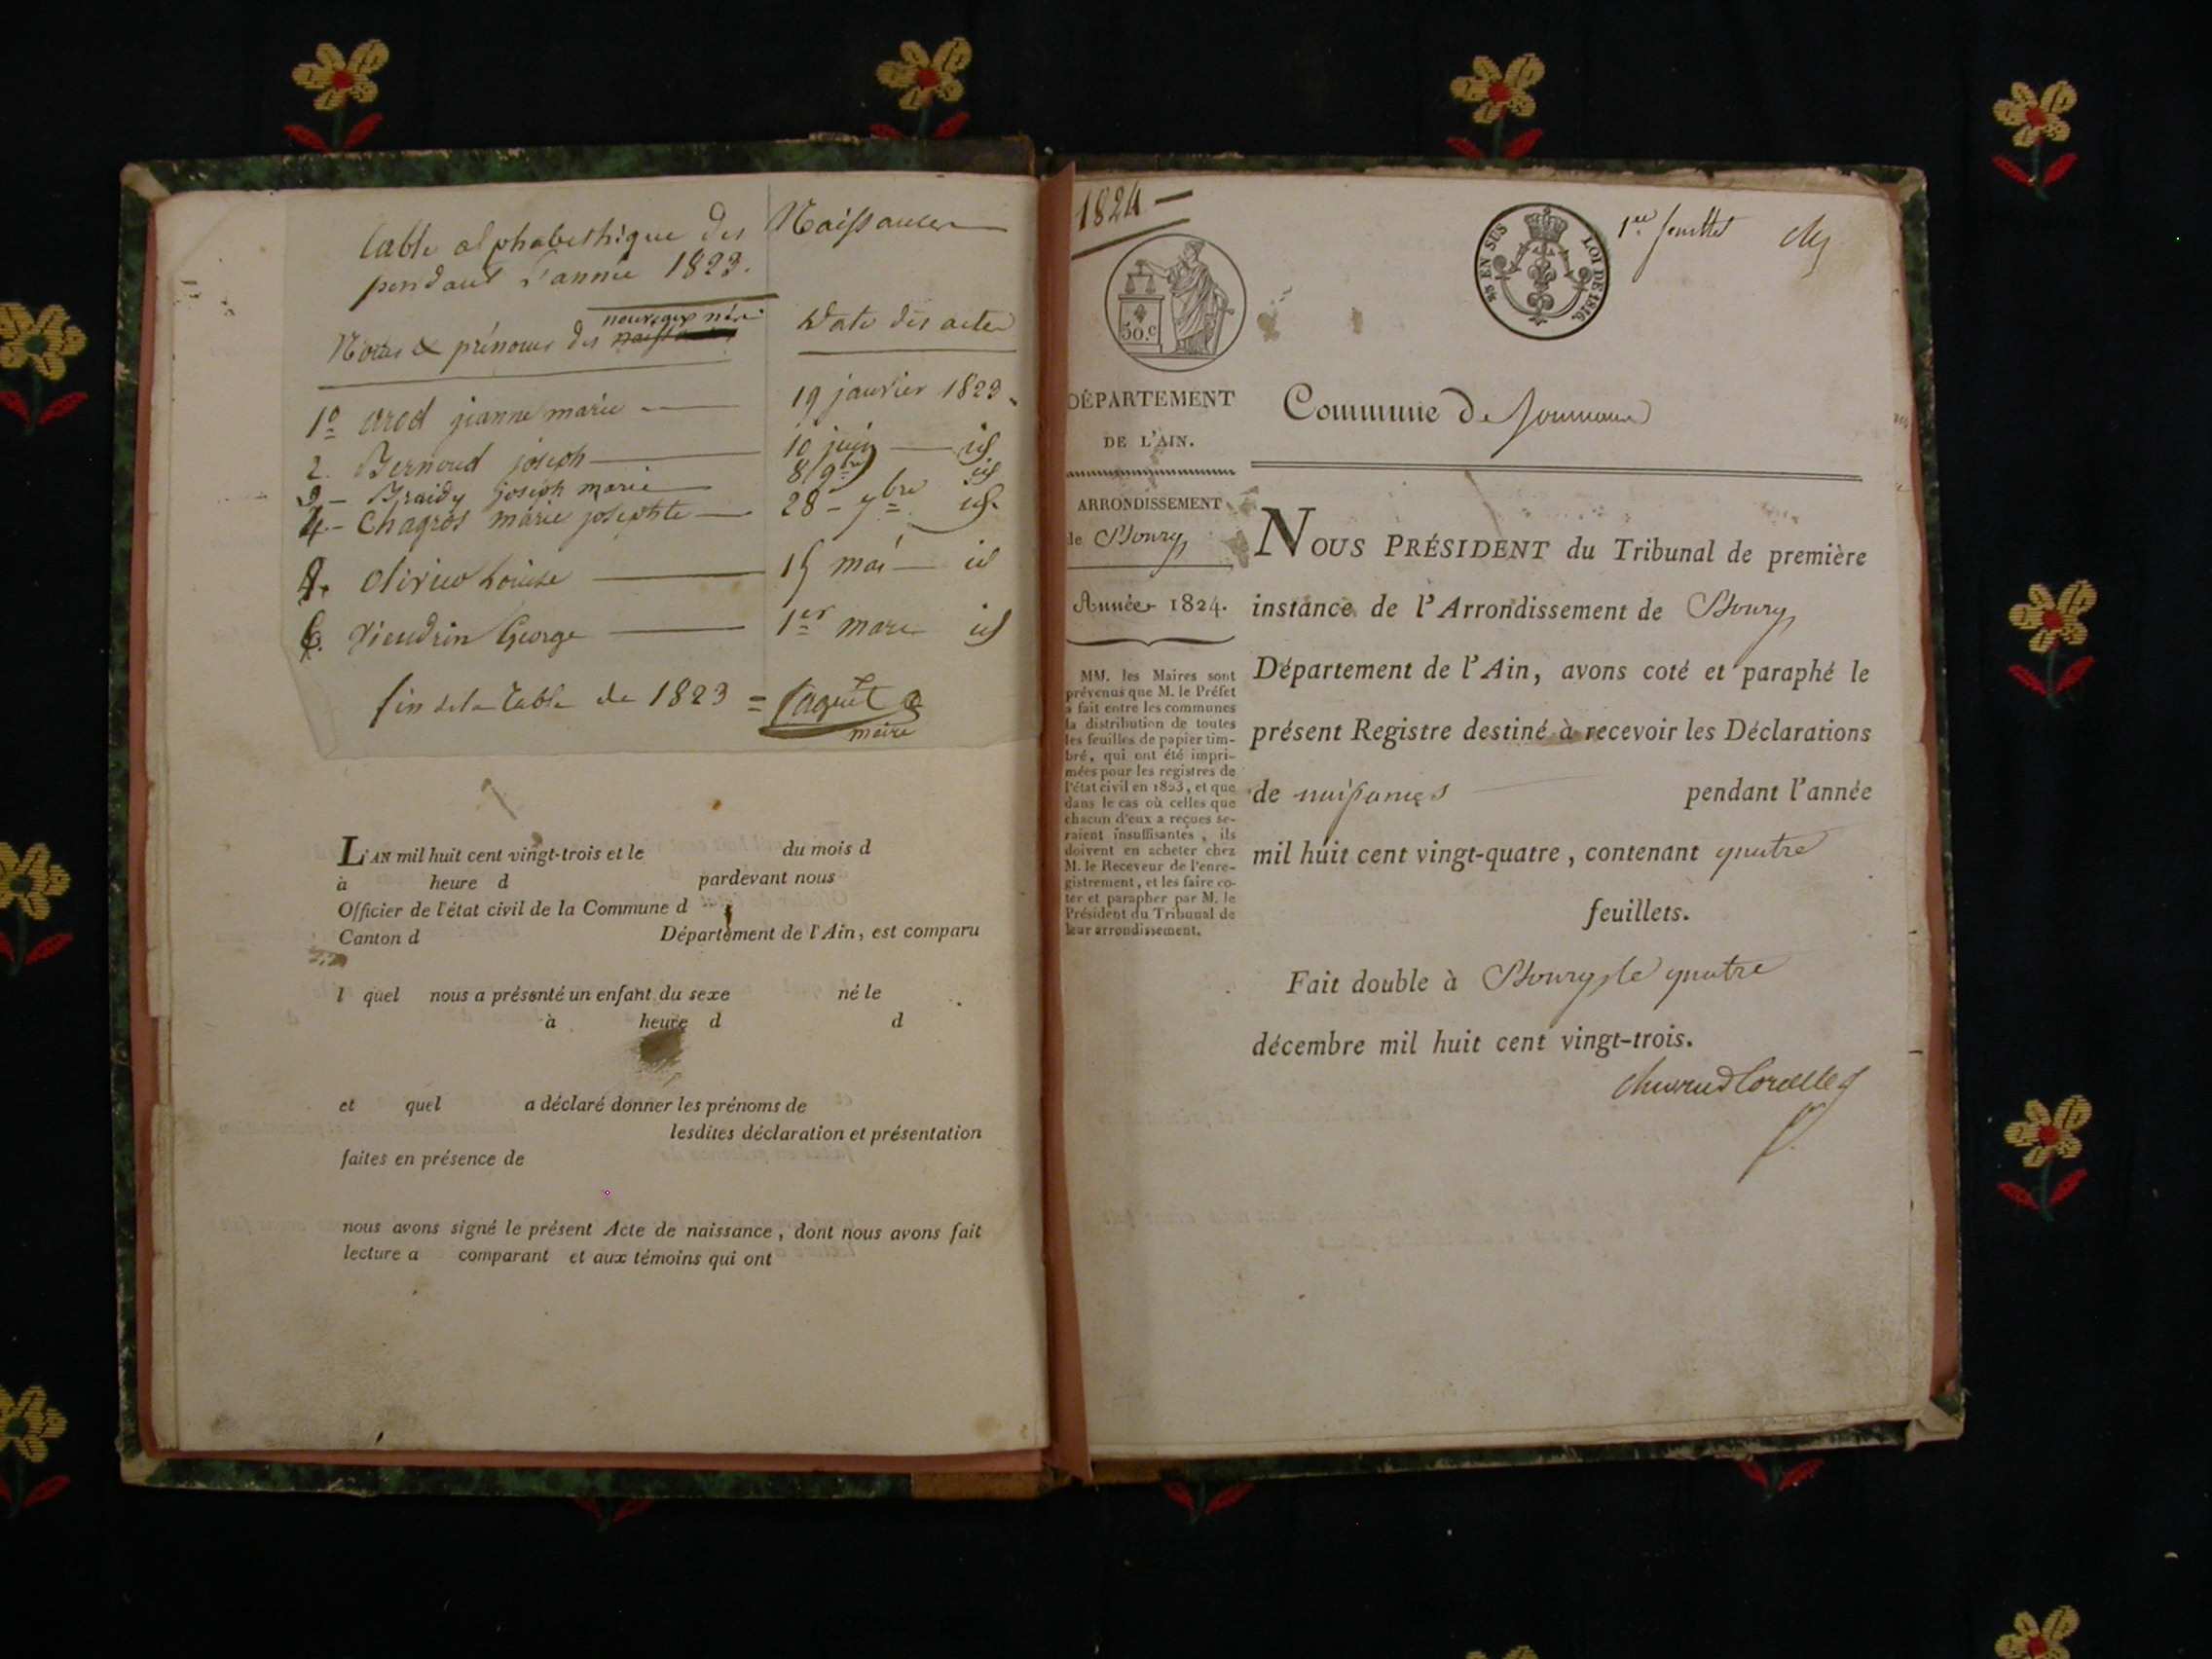 table alphabethique des Naissances
pendant l'année 1823.
nouveaux nés
Noms & prénoms des
Date des actes
1º arod jeanne marie — 19 janvier 1823.
2. Bernoud joseph — 10 juin — id
3 — Braidy joseph marie — 8 9bre id
4 — Chagros marie josephte — 28 - 7bre id.
5. olivier Louise — 15 mai — id
6. vieudrin George — 1er mars id
fin de la table de 1823 =
maire
L'AN mil huit cent vingt-trois et le du mois d
à heure d pardevant nous
Officier de l'état civil de la Commune d
Canton d Département de l'Ain, est comparu
l quel nous a présenté un enfant du sexe né le
à heure d d
et quel a déclaré donner les prénoms de
lesdites déclaration et présentation
faites en présence de
nous avons signé le présent Acte de naissance, dont nous avons fait
lecture a comparant et aux témoins qui ont
1824 —
50.c
EN SUS LOI DE 1816.
1er feuillet
DÉPARTEMENT
DE L'AIN.
ARRONDISSEMENT
de Bourg
Année 1824.
MM. les Maires sont
prévenus que M. le Préfet
a fait entre les communes
la distribution de toutes
les feuilles de papier tim-
bré, qui ont été impri-
mées pour les registres de
l'état civil en 1823, et que
dans le cas où celles que
chacun d'eux a reçues se-
raient insuffisantes, ils
doivent en acheter chez
M. le Receveur de l'enre-
gistrement, et les faire co-
ter et parapher par M. le
Président du Tribunal de
leur arrondissement.
Commune de
NOUS PRÉSIDENT du Tribunal de première
instance de l'Arrondissement de Bourg
Département de l'Ain, avons coté et paraphé le
présent Registre destiné à recevoir les Déclarations
de naissances pendant l'année
mil huit cent vingt-quatre, contenant quatre
feuillets.
Fait double à Bourg, le quatre
décembre mil huit cent vingt-trois.